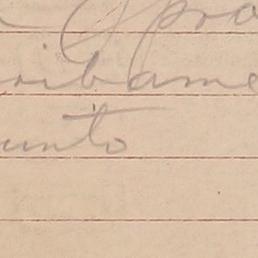 pro
ribame
unto